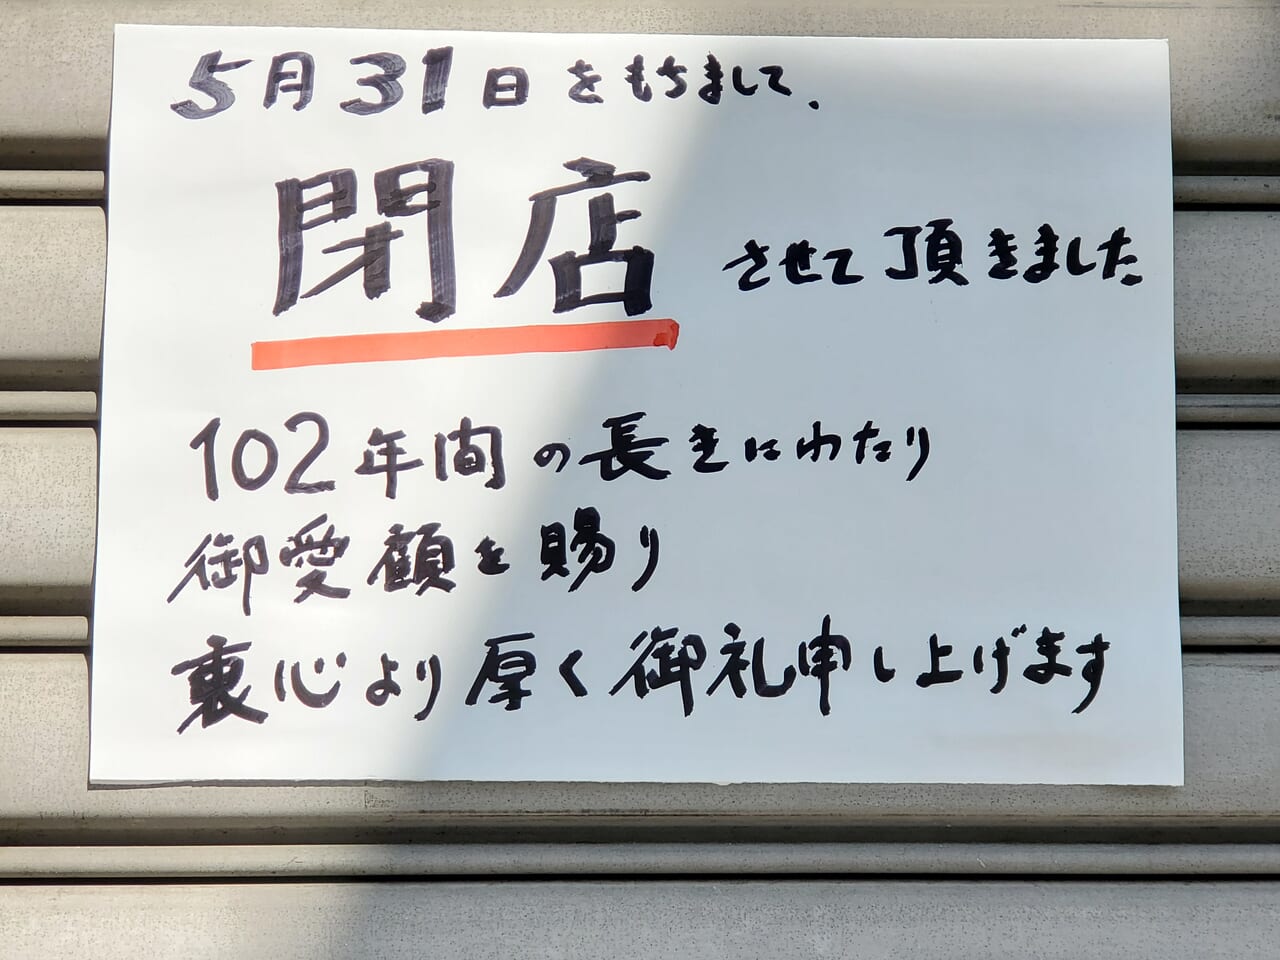 5月31日をもちまして、
閉店させて頂きました
102年間の長きにわたり
御愛顧を賜り
衷心より厚く御礼申し上げます